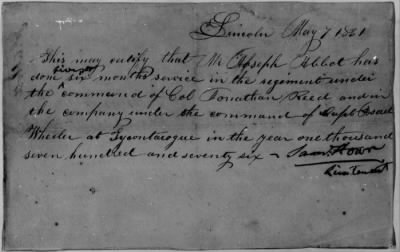 Lincoln May 7 1821
This may certify that Mr Joseph Abbot has
done six months service in the regiment under
the command of Col Jonathan Reed and in
the company under the command of Capt Asael
Wheeler at Tycontacogue in the year one thousand
seven hundred and seventy six - Saml Howr
Lieutenant